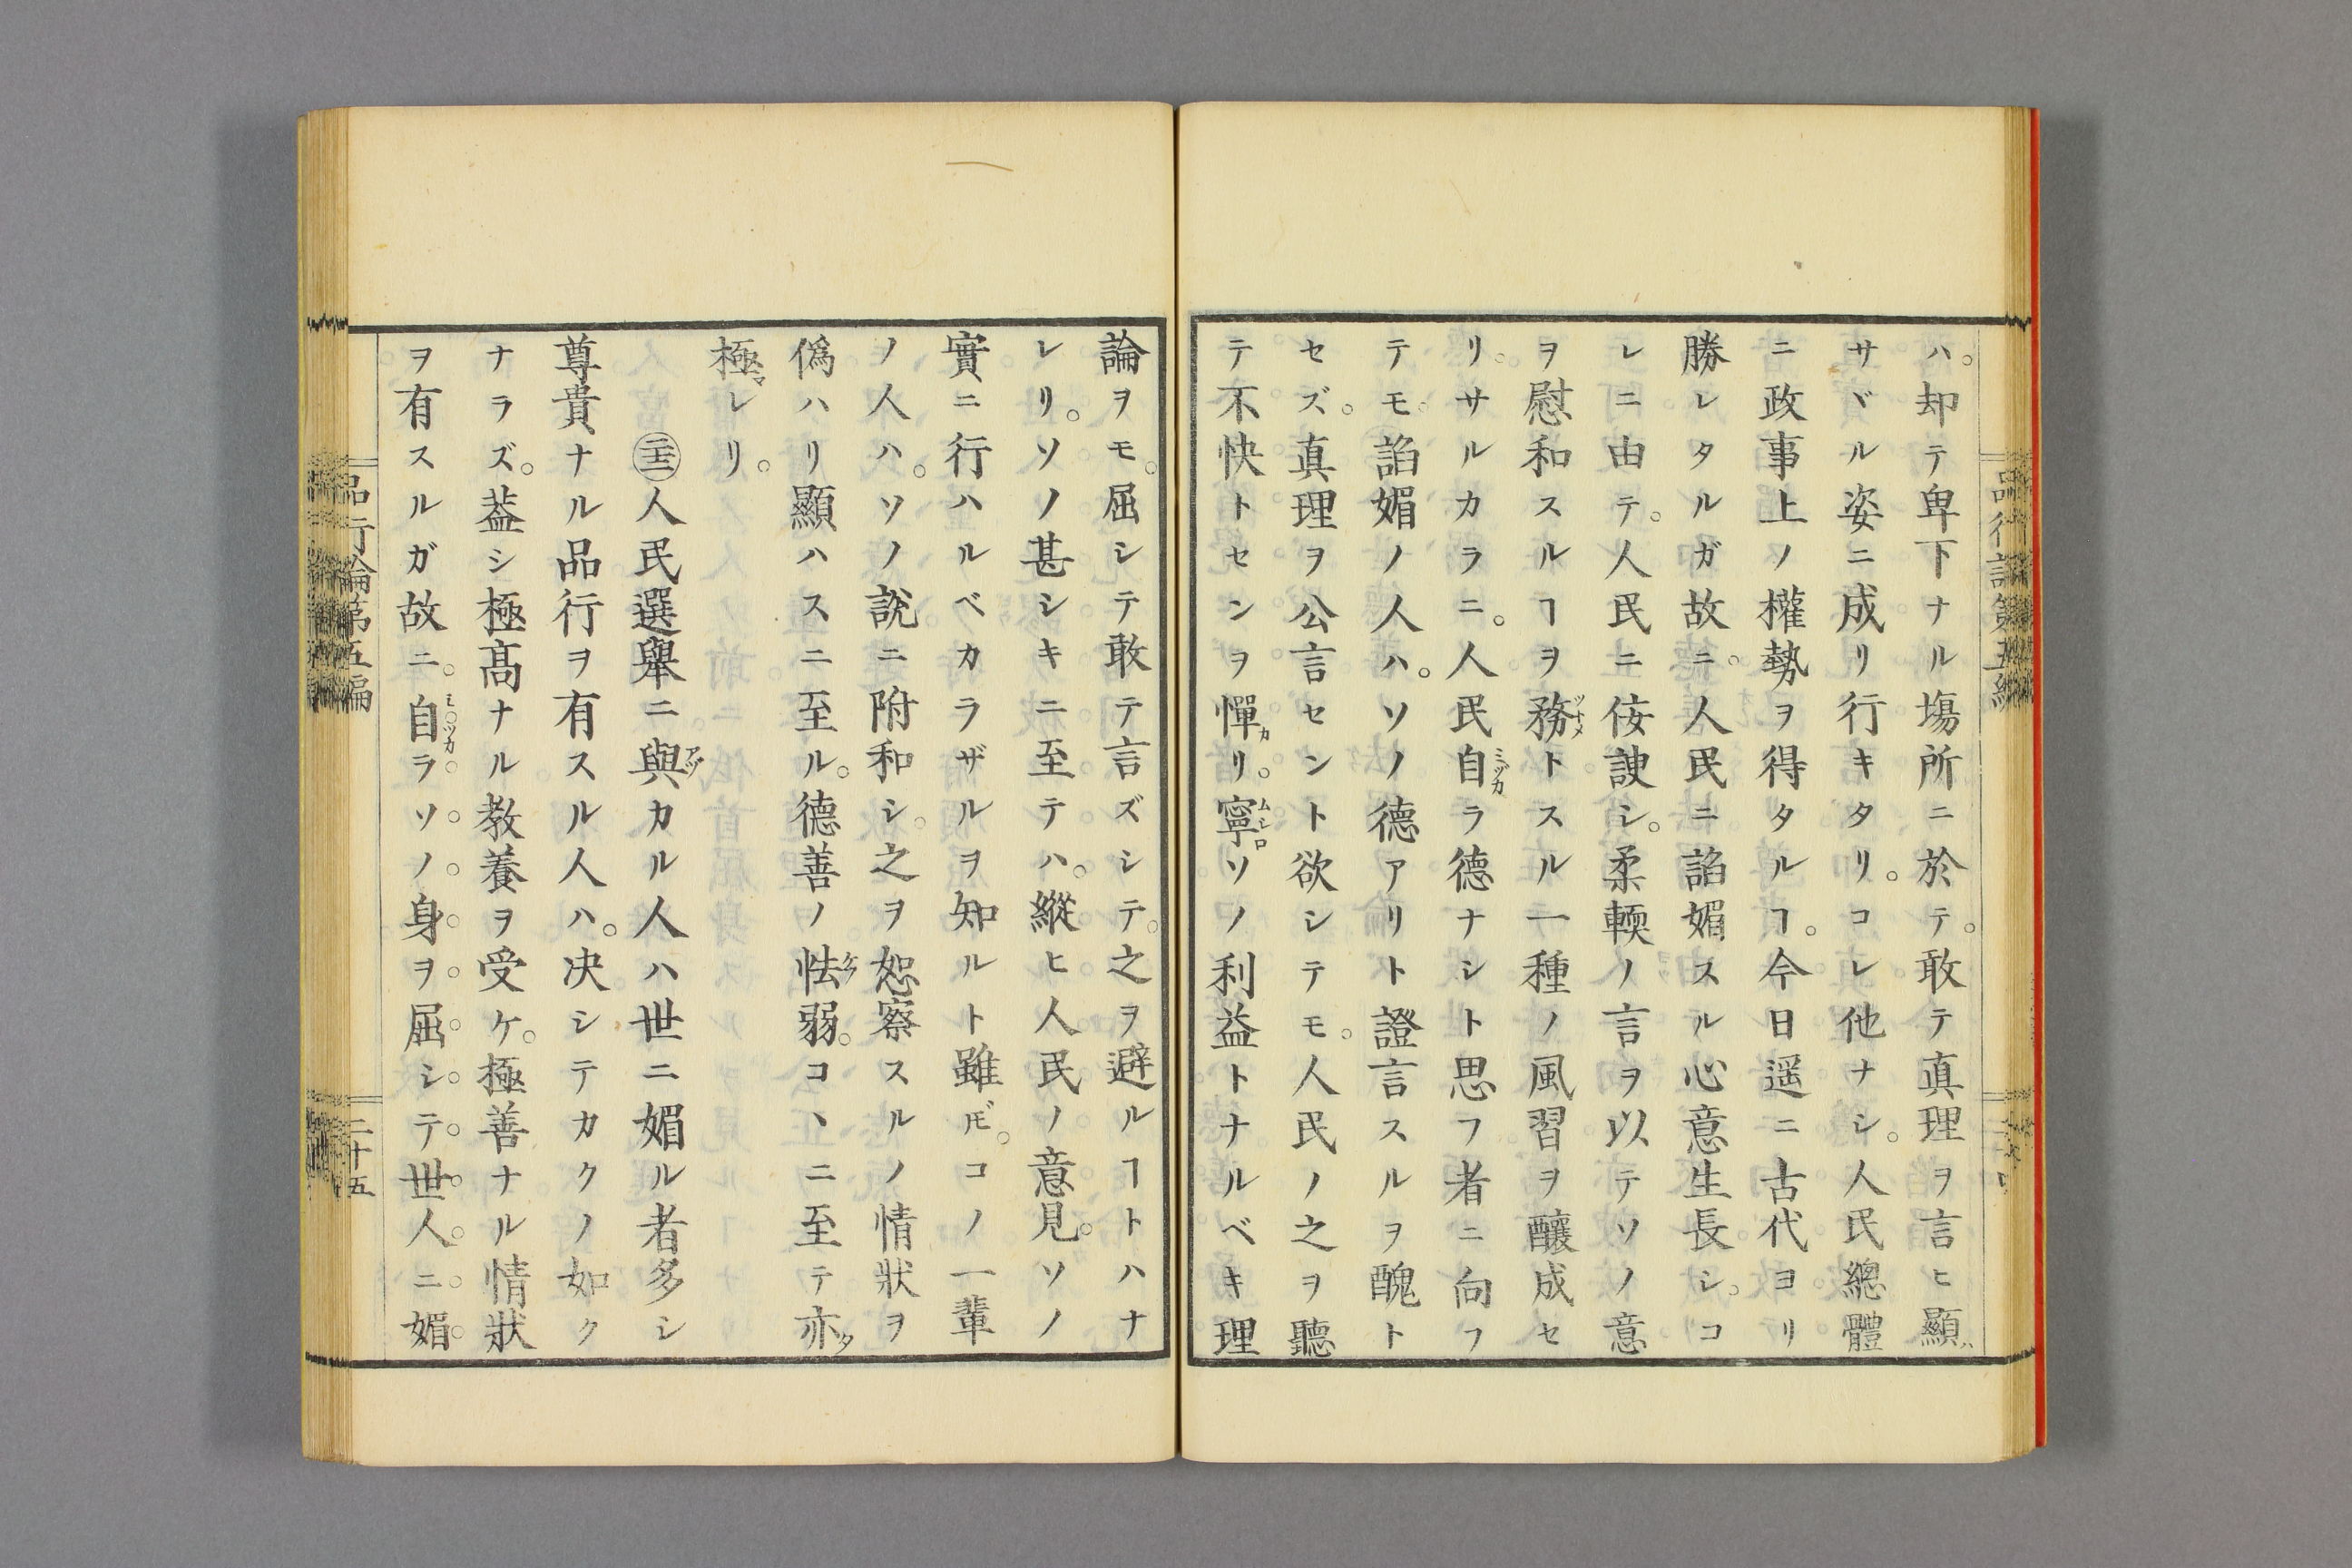 ハ。却テ卑下ナル塲所ニ於テ。敢テ真理ヲ言ヒ顯ハ
サヾル姿ニ成リ行キタリ。コレ他ナシ。人民總體
ニ政事上ノ權勢ヲ得タルヿ。今日遥ニ古代ヨリ
勝レタルガ故ニ。人民ニ諂媚スル心意生長シ。コ
レニ由テ。人民ニ侫諛シ。柔輭ノ言ヲ以テソノ意
ヲ慰和スルヿヲ務ツトメトスル一種ノ風習ヲ釀成セ
リ。サルカラニ。人民自ミヅカラ德ナシト思フ者ニ向フ
テモ。諂媚ノ人ハ。ソノ德アリト證言スルヲ醜ト
セズ。真理ヲ公言セント欲シテモ。人民ノ之ヲ聽
テ不快トセンヲ憚カリ。寧ムシロソノ利益トナルベキ理
論ヲモ。屈シテ敢テ言ズシテ。之ヲ避ルヿトハナ
レリ。ソノ甚シキニ至テハ。縱ヒ人民ノ意見。ソノ
實ニ行ハルベカラザルヲ知ルト雖ドモ。コノ一輩
ノ人ハ。ソノ說ニ附和シ。之ヲ恕察スルノ情狀ヲ
僞ハリ顯ハスニ至ル。德善ノ怯弱。コヽニ至テ亦タ
極マレリ。
㊁人民選舉ニ與アヅカル人ハ世ニ媚ル者多シ
尊貴ナル品行ヲ有スル人ハ。决シテカクノ如ク
ナラズ。葢シ極髙ナル教養ヲ受ケ。極善ナル情狀
ヲ有スルガ故ニ。自ミヅカラソノ身ヲ屈シテ世人ニ媚
品行論第五編
二十五